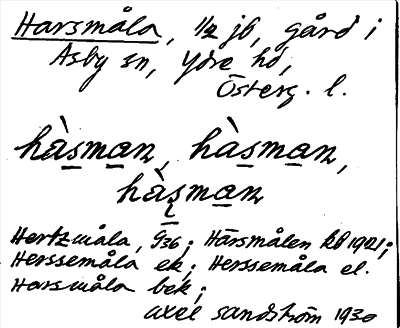 Harsmåla, 1/2 jb, gård i
Asby sn, Ydre hd,
Österg. l.
hàsman, hàsman,
hàșman
Hertzmåla, G36; Harsmålen kb 1921;
Herssemåla ek; Herssemåla el.
Harsmåla bek;
Axel Sandström 1930